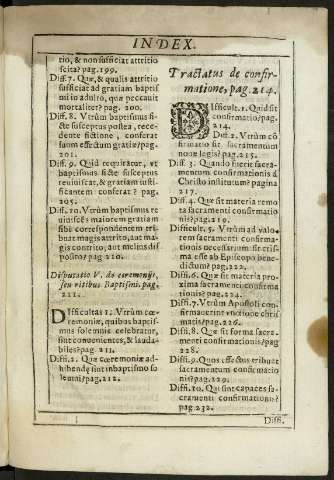 INDEX.
tio, & non sufficiat attritio
scita? pag. 199.
Diff. 7. Quæ, & qualis attritio
sufficiat ad gratiam baptis
mi in adulto, quæ peccauit
mortaliter? pag. 200.
Diff. 8. Vtrùm baptismus fi-
ctè susceptus postea, rece-
dente fictione, conferat
suum effectum gratiæ? pag.
201.
Diff. 9. Quid requiratur, vt
baptismus fictè susceptus
reuiuiscat, & gratiam iusti-
ficantem conferat? pag.
205.
Diff. 10. Vtrùm baptismus re
uiuiscẽs maiorem gratiam
sibi correspondentem tri-
buat magis attrito, aut ma-
gis contrito, aut meliùs dis
posito? pag. 210.
Disputatio V. de ceremonijs,
seu ritibus Baptismi. pag.
211.
Difficultas 1. Vtrùm cœ-
remoniæ, quibus baptis-
mus solemnis celebratur,
sint conuenientes, & lauda-
biles? pag. 211.
Diff. 2. Quæ cœremoniæ ad-
hibendę sint in baptismo so
lemni? pag. 212.
Tractatus de confir-
matione, pag. 214.
Difficult. 1. Quid sit
confirmatio? pag.
214.
Diff. 2. Vtrùm cõ
firmatio sit sacramentum
nouæ legis? pag. 215.
Diff. 3. Quando fuerit sacra-
mentum confirmationis à
Christo institutum? pagina
217.
Diff. 4. Quæ sit materia remo
ta sacramenti confirmatio
nis? pag. 219.
Difficult. 5. Vtrùm ad valo-
rem sacramenti confirma-
tionis necessarium sit chris-
ma esse ab Episcopo bene-
dictum? pag. 222.
Diff. 6. Quæ sit materia pro-
xima sacramenti confirma
tionis? pag. 224.
Diff. 7. Vtrùm Apostoli con-
firmauerint vnctione chris
matis? pag. 226.
Diff. 8. Quæ sit forma sacra-
menti confirmationis? pag
228.
Diff. 9. Quos effectus tribuat
sacramentum confirmatio
nis? pag. 229.
Diff. 10. Qui sint capaces sa-
cramenti confirmationis?
pag. 232.
Diff.